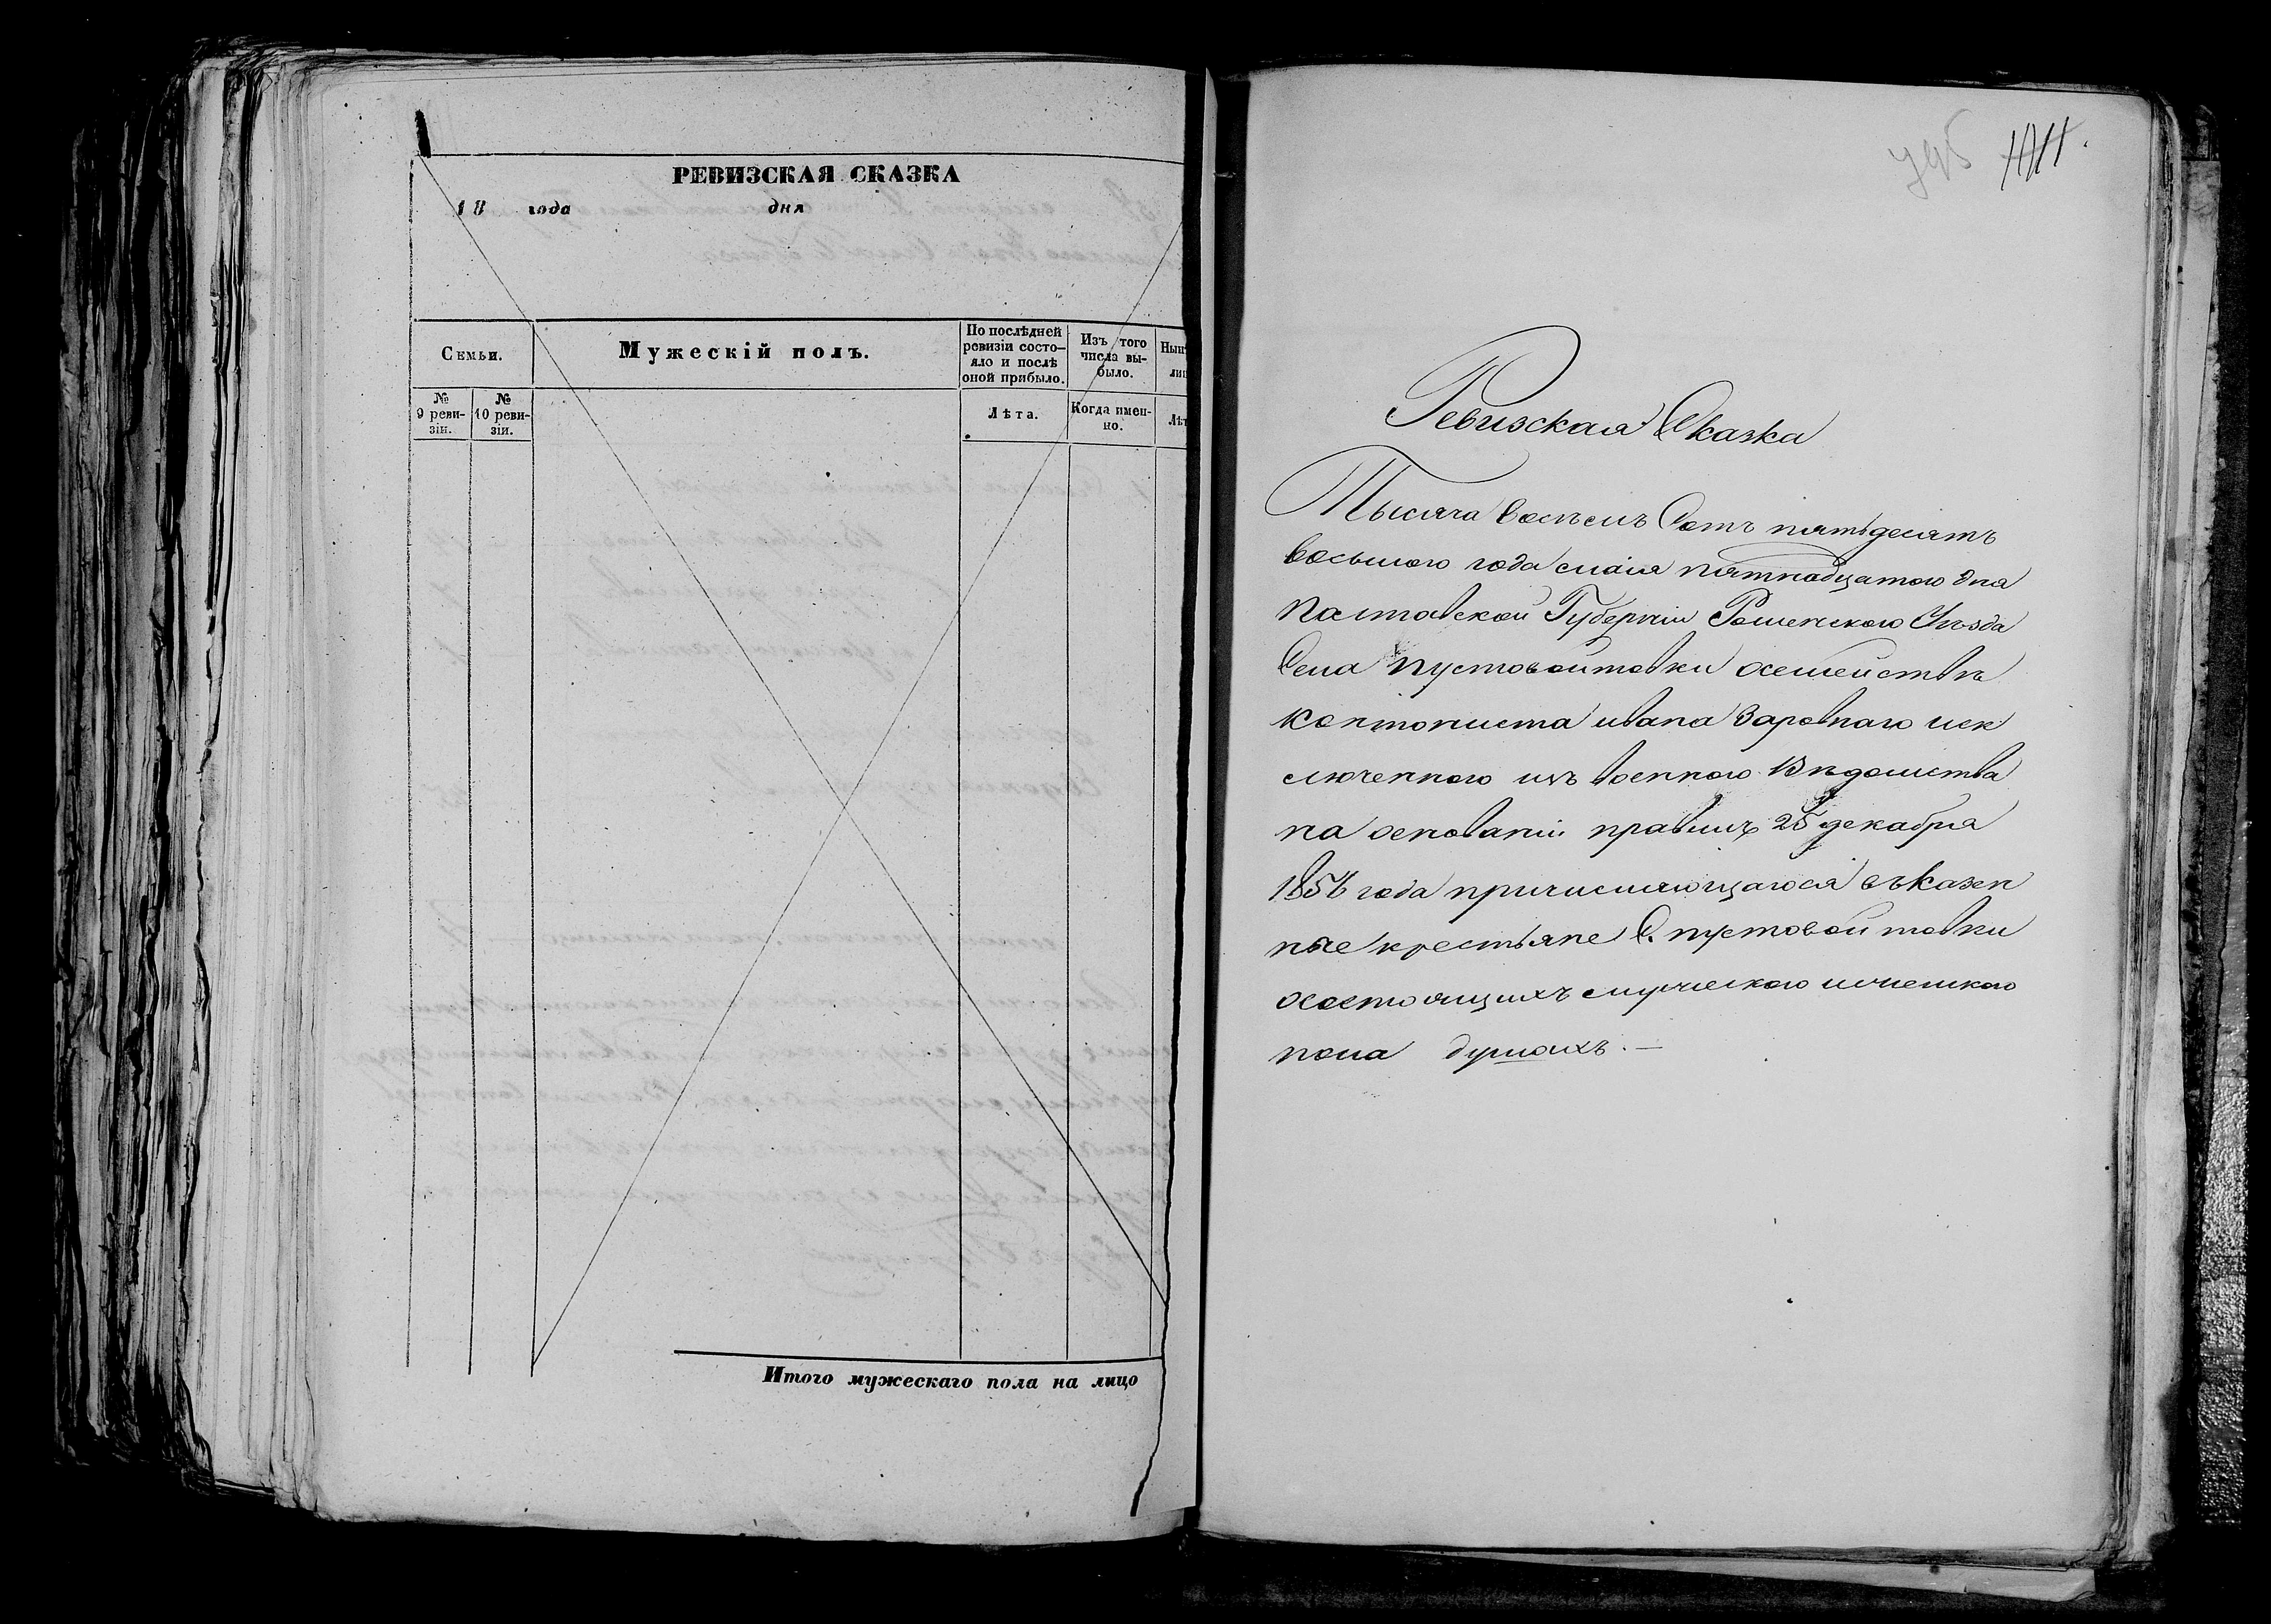 РЕВИЗСКАЯ СКАЗКА
18 года дня
Семьи.
Мужескій полъ.
По послѣдней ревизіи состо-
яло и послѣ
оной прибыло.
Изъ того
числа вы-
было.
№
9 реви-
зіи.
№
10 реви-
зіи.
Лѣта.
Когда имен-
но.
Итого мужескаго пола на лицо
Ревизская Сказка
Тысяча восъемъ Сотъ пятьдесятъ
восьмого года смаія пятнадцатого дня
Палтавской Губерніи Роменского Уѣзда
Села пустовойтовки осемействѣ
контониста ивана Заровнаго иск
люченного изъ военного Вѣдомства
на основаніи правилъ 25 декабря
1856 года причисляющагося въ казен
ные крестьяне С. пустовойтовки
осостоящихъ мужеского иженского
пола душахъ. —